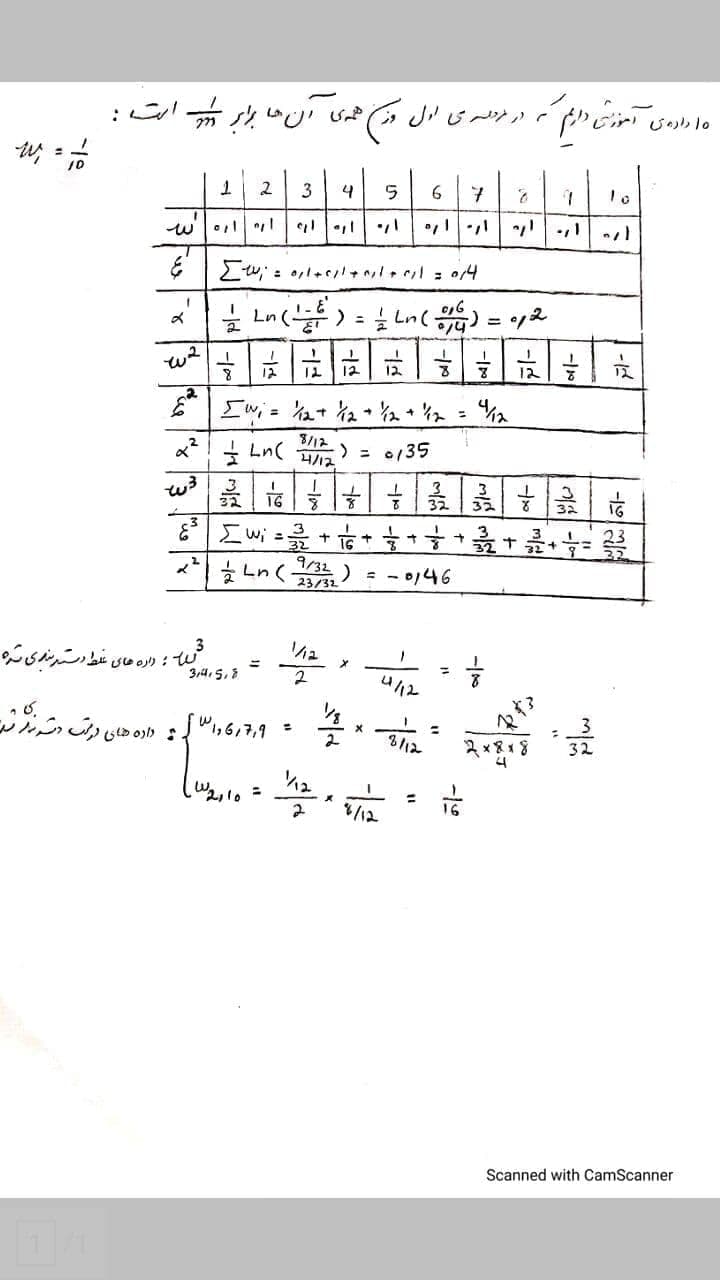 ۱۰ داده‌ی آموزشی داریم که در مرحله‌ی اول وزن همه‌ی آن ها برابر 1/m است :
wᵢ = 1/10
1 2 3 4 5 6 7 8 9 10
w¹ ۰٫۱ ۰٫۱ ۰٫۱ ۰٫۱ ۰٫۱ ۰٫۱ ۰٫۱ ۰٫۱ ۰٫۱ ۰٫۱
ε¹ Σwᵢ = ۰٫۱ + ۰٫۱ + ۰٫۱ + ۰٫۱ = ۰٫4
α¹ 1/2 Ln(1-ε¹/ε¹) = 1/2 Ln(۰٫6/۰٫4) = ۰٫2
w² 1/8 1/12 1/12 1/12 1/12 1/8 1/8 1/12 1/8 1/12
ε² Σwᵢ = 1/12 + 1/12 + 1/12 + 1/12 = 4/12
α² 1/2 Ln(8/12 / 4/12) = ۰٫35
w³ 3/32 1/16 1/8 1/8 1/8 3/32 3/32 1/8 3/32 1/16
ε³ Σwᵢ = 3/32 + 1/16 + 1/8 + 1/8 + 3/32 + 3/32 + 1/8 = 23/32
α² 1/2 Ln(9/32 / 23/32) = -۰٫46
داده های غلط دسته بندی شده : w³ 3,4,5,8 = 1/12 / 2 × 1 / 4/12 = 1/8
داده های درست دسته بندی : { w1,6,7,9 = 1/8 / 2 × 1 / 8/12 = 12 3 / 2×8×8 4 = 3/32
w2,10 = 1/12 / 2 × 1 / 8/12 = 1/16
Scanned with CamScanner
1 /1